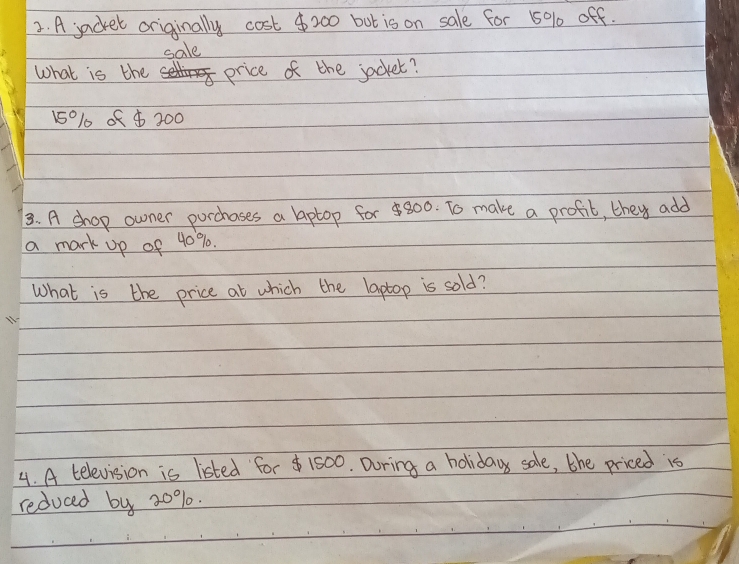 2. A jacket originally cost $200 but is on sale for 15% off.
sale
What is the selling price of the jacket?
15% of $200
3. A shop owner purchases a laptop for $800. To make a profit, they add
a mark up of 40%.
What is the price at which the laptop is sold?
4. A television is listed for $1500. During a holiday sale, the priced is
reduced by 20%.